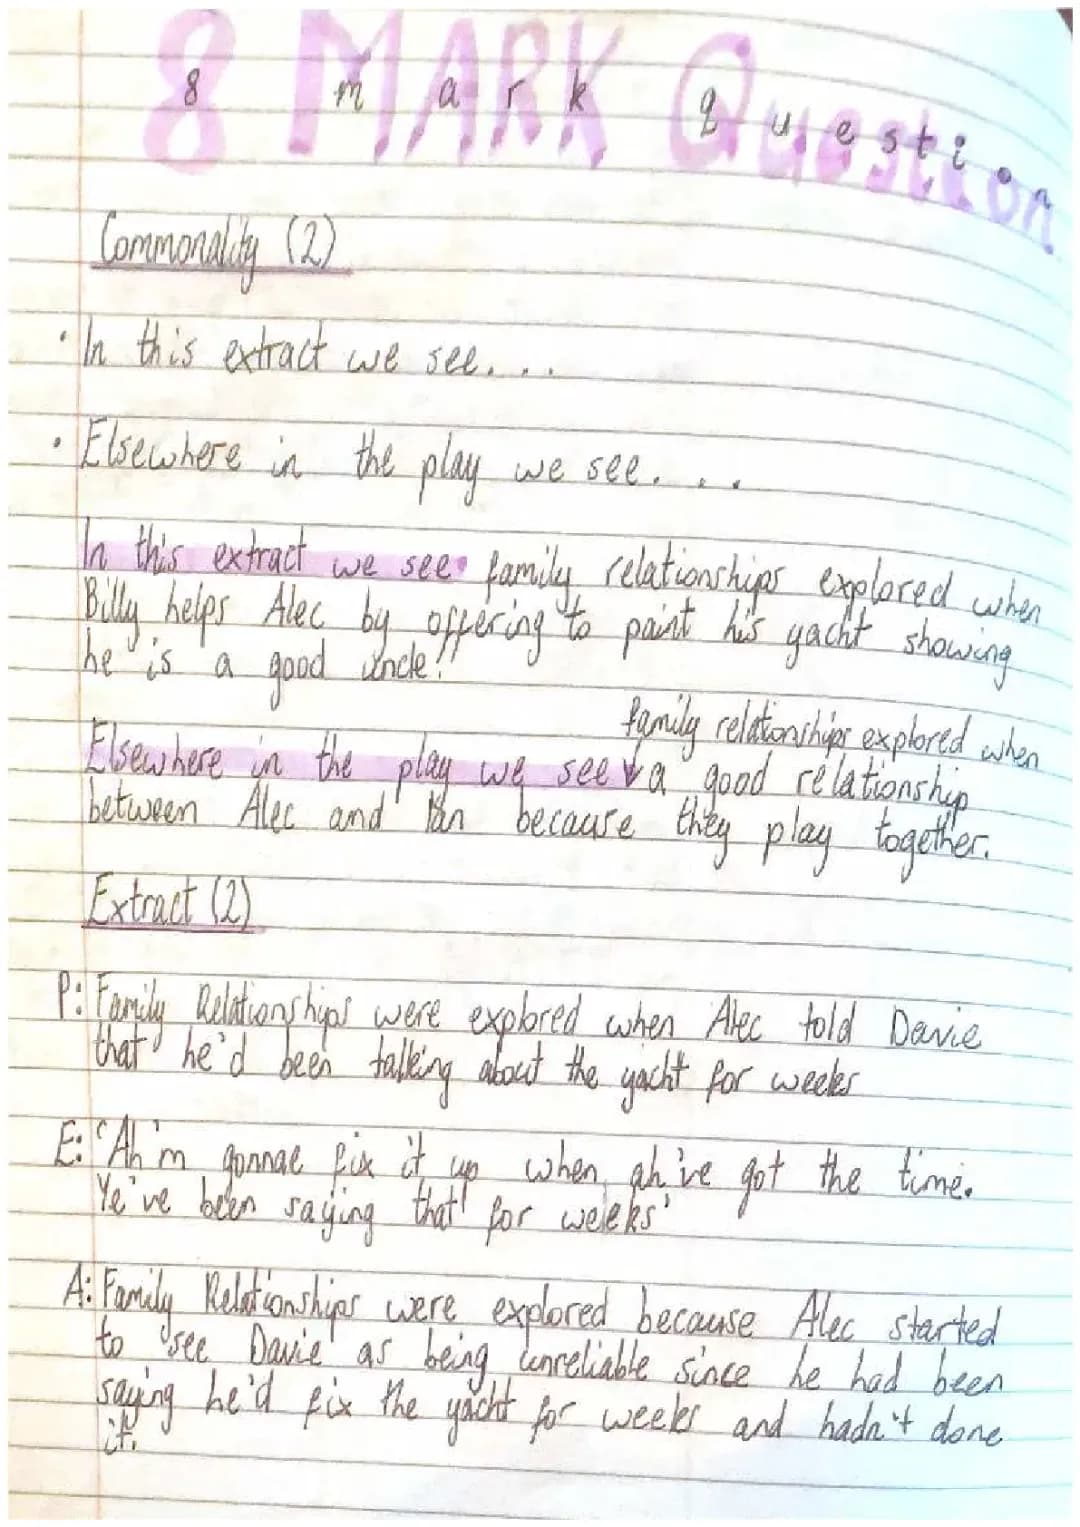 8 MARK Question
8 mark question
Commonality (2)
• In this extract we see. . .
• Elsewhere in the play we see. . .
In this extract we see family relationships explored when
Billy helps Alec by offering to paint his yacht showing
he is a good uncle!!
family relationships explored when
Elsewhere in the play we see a good relationship
between Alec and Ian because they play together.
Extract (2)
P: Family Relationships were explored when Alec told Davie
that he'd been talking about the yacht for weeks
E: 'Ah'm gonnae fix it up when ah've got the time.
Ye've been saying that for weeks'
A: Family Relationships were explored because Alec started
to see Davie as being unreliable since he had been
saying he'd fix the yacht for weeks and hadn't done
it.